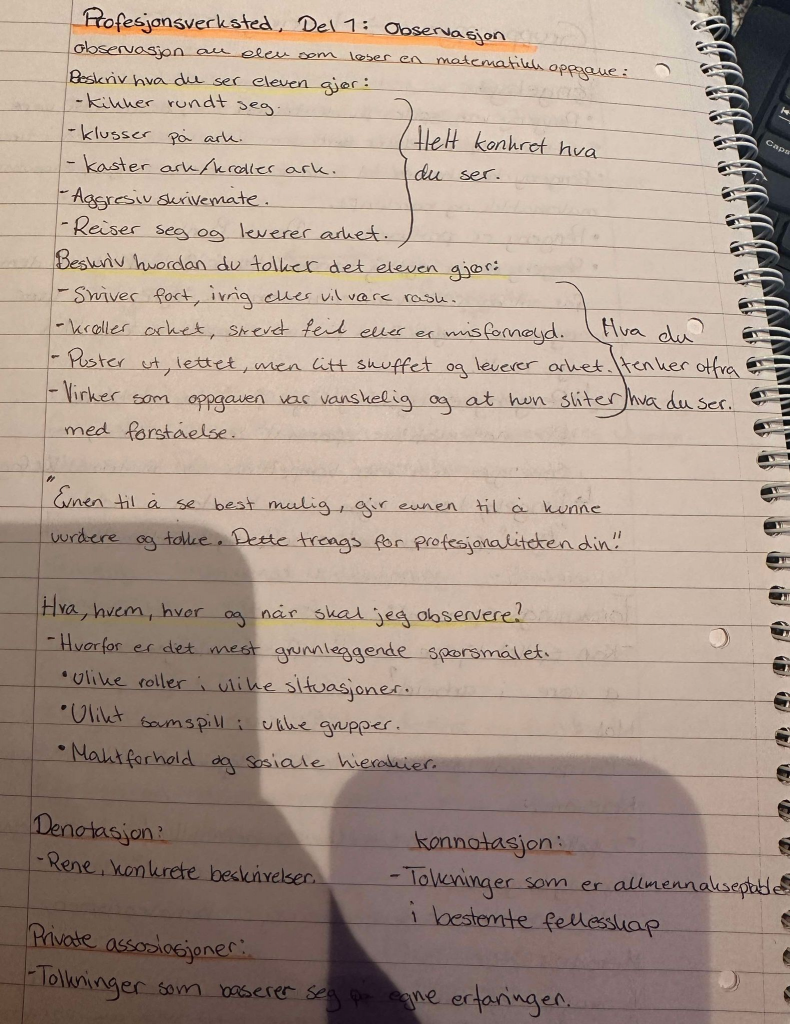 Profesjonsverksted, Del 1: Observasjon
observasjon av elev som løser en matematikk oppgave:
Beskriv hva du ser eleven gjør:
- kikker rundt seg.
- klusser på ark.
- kaster ark/krøller ark.
- Aggresiv skrivemåte.
- Reiser seg og leverer arket.
Helt konkret hva
du ser.
Beskriv hvordan du tolker det eleven gjør:
- Skriver fort, ivrig eller vil være rask.
- krøller arket, skrevet feil eller er misfornøyd.
- Puster ut, lettet, men litt skuffet og leverer arket.
- Virker som oppgaven var vanskelig og at hun sliter
med forståelse.
Hva du
tenker utfra
hva du ser.
"Evnen til å se best mulig, gir evnen til å kunne
vurdere og tolke. Dette trengs for profesjonaliteten din!"
Hva, hvem, hvor og når skal jeg observere?
- Hvorfor er det mest grunnleggende spørsmålet.
• Ulike roller i ulike situasjoner.
• Ulikt samspill i ulike grupper.
• Maktforhold og sosiale hierakier.
Denotasjon:
- Rene, konkrete beskrivelser.
konnotasjon:
- Tolkninger som er allmennakseptable
i bestemte fellesskap
Private assosiasjoner:
- Tolkninger som baserer seg på egne erfaringer.
Caps